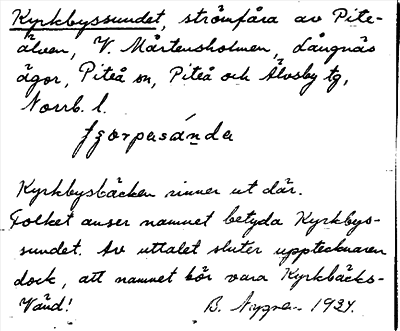 Kyrkbyssundet, strömfåra av Pite-
älven, V. Mårtensholmen, Långnäs
ägor, Piteå sn, Piteå och Älvsby tg,
Norrb. l.
Kyrkbysbäcken rinner ut där.
Folket anser namnet betyda Kyrkbys-
sundet. Av uttalet sluter upptecknaren
dock, att namnet bör vara Kyrkbäcks-
B. Nygren 1924.